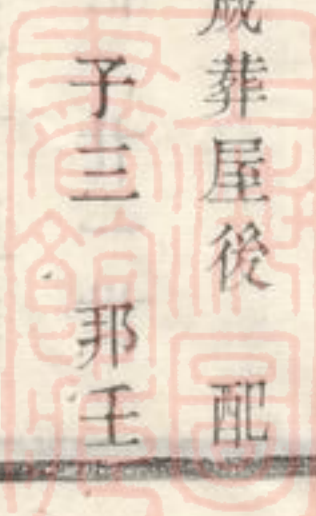 歲葬屋後 配
子三 邦壬